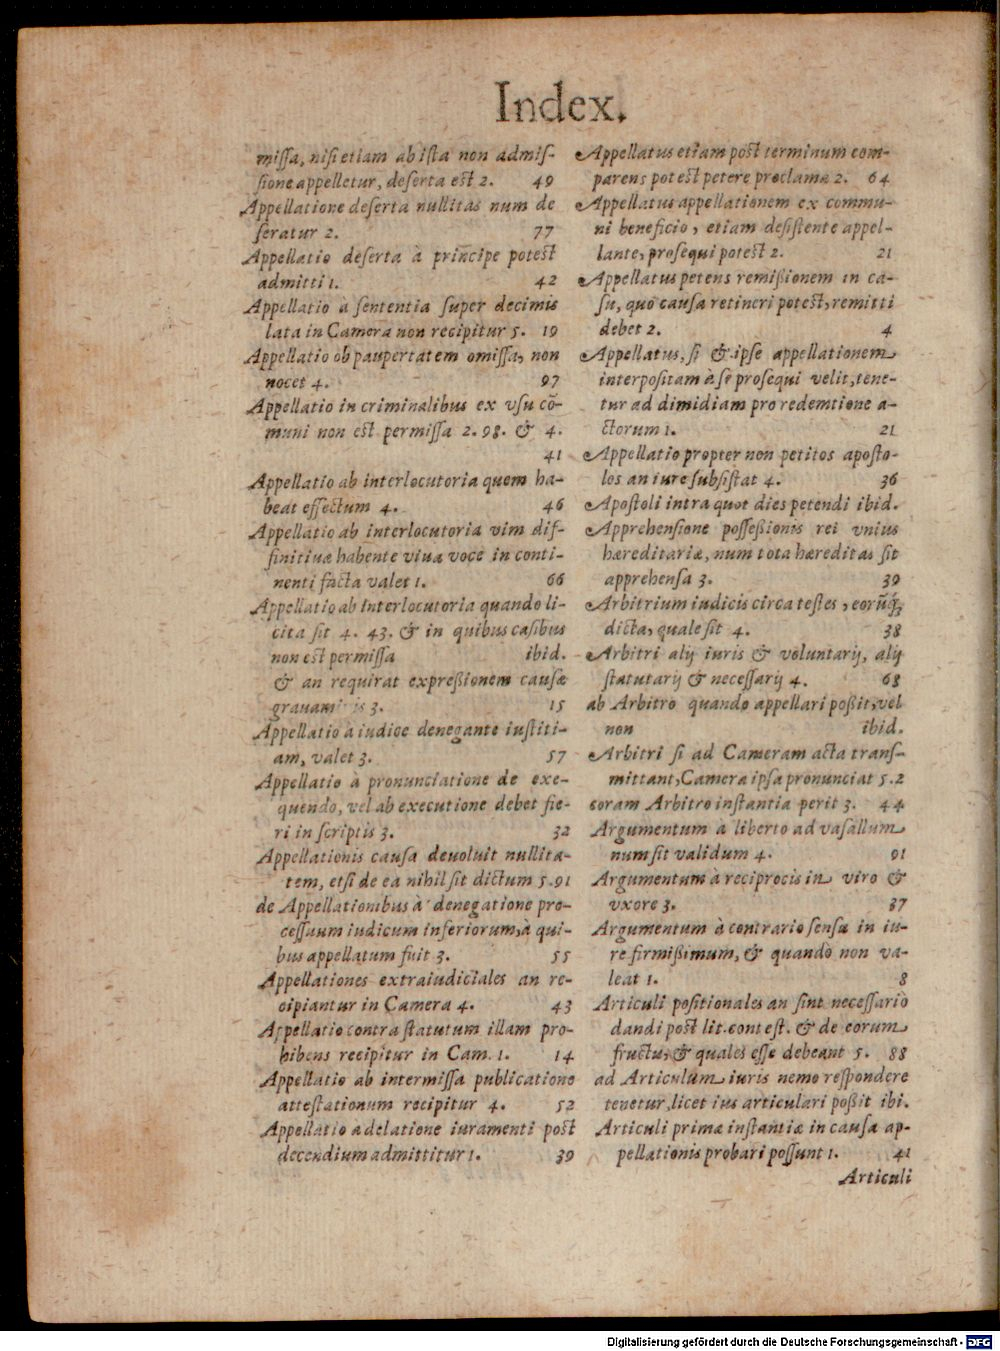 Index.
missa, nisi etiam ab ista non admis-
sione appelletur, deserta est 2. 49
Appellatione deserta nullitas num de
feratur 2. 77
Appellatio deserta à principe potest
admitti 1. 42
Appellatio a sententia super decimis
lata in Camera non recipitur 5. 19
Appellatio ob paupertatem omissa, non
nocet 4. 97
Appellatio in criminalibus ex vsu cō-
muni non est permissa 2. 98. & 4.
41
Appellatio ab interlocutoria quem ha-
beat effectum 4. 46
Appellatio ab interlocutoria vim dif-
finitiuæ habente viua voce in conti-
nenti facta valet 1. 66
Appellatio ab interlocutoria quando li-
cita sit 4. 43. & in quibus casibus
non est permissa ibid.
& an requirat expreßionem causæ
15
Appellatio à iudice denegante iustiti-
am, valet 3. 57
Appellatio à pronunciatione de exe-
quendo, vel ab executione debet fie-
ri in scriptis 3. 32
Appellationis causa deuoluit nullita-
tem, etsi de ea nihil sit dictum 5. 91
de Appellationibus à denegatione pro-
cessuum iudicum inferiorum, à qui-
bus appellatum fuit 3. 55
Appellationes extraiudiciales an re-
cipiantur in Camera 4. 43
Appellatio contra statutum illam pro-
hibens recipitur in Cam. 1. 14
Appellatio ab intermissa publicatione
attestationum recipitur 4. 52
Appellatio a delatione iuramenti post
decendium admittitur 1. 39
Appellatus etiam post terminum com-
parens potest petere proclama 2. 64
Appellatus appellationem ex commu-
ni beneficio, etiam desistente appel-
lante, prosequi potest 2. 21
Appellatus petens remißionem in ca-
su, quo causa retineri potest, remitti
debet 2. 4
Appellatus, si & ipse appellationem
interpositam à se prosequi velit, tene-
tur ad dimidiam pro redemtione a-
ctorum 1. 21
Appellatio propter non petitos aposto-
los an iure subsistat 4. 36
Apostoli intra quot dies petendi ibid.
Apprehensione posseßionis rei vnius
hæreditariæ, num tota hæreditas sit
apprehensa 3. 39
Arbitrium iudicis circa testes, eorūq́;
dicta, quale sit 4. 38
Arbitri alij iuris & voluntarij, alij
statutarij & necessarij 4. 68
ab Arbitro quando appellari poßit, vel
non ibid.
Arbitri si ad Cameram acta trans-
mittant, Camera ipsa pronunciat 5. 2
coram Arbitro instantia perit 3. 44
Argumentum à liberto ad vasallum
num sit validum 4. 91
Argumentum à reciprocis in viro &
vxore 3. 37
Argumentum à contrario sensu in iu-
re firmißimum, & quando non va-
leat 1. 8
Articuli positionales an sint necessario
dandi post lit. contest. & de eorum
fructu, & quales esse debeant 5. 88
ad Articulum iuris nemo respondere
tenetur, licet ius articulari poßit ibi.
Articuli primæ instantiæ in causa ap-
pellationis probari possunt 1. 41
Articuli
Digitalisierung gefördert durch die Deutsche Forschungsgemeinschaft - DFG